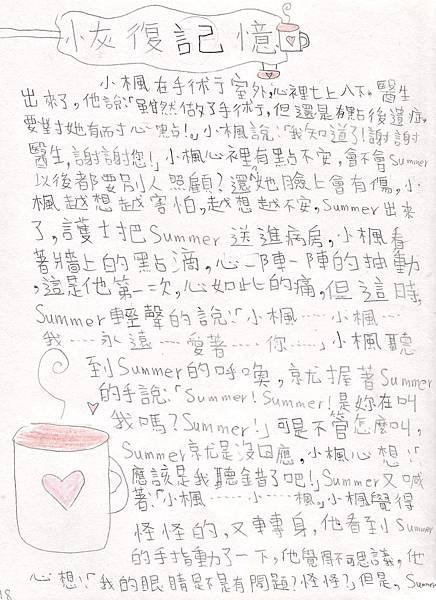 小灰復記憶
小楓在手術室外,心裡七上八下。醫生
出來了,他說:「雖然做了手術,但還是有點後遺症,
要對她有耐心點!」小楓說:「我知道了!謝謝
醫生,謝謝您!」小楓心裡有點不安,會不會Summer
以後都要別人照顧?還她臉上會有傷,小
楓越想越害怕,越想越不安,Summer出來
了,護士把Summer送進病房,小楓看
著牆上的點滴,心一陣一陣的抽動
,這是他第一次,心如此的痛,但這時,
Summer輕聲的說:「小楓……小楓…
我……永遠…愛著……你……」小楓聽
到Summer的呼喚,就握著Summer
的手說:「Summer!Summer!是妳在叫
我嗎?Summer!」可是不管怎麼叫,
Summer就是沒回應,小楓心想:「
應該是我聽錯了吧!」Summer又喊
著:「小楓……小…楓」小楓覺得
怪怪的,又轉身,他看到Summer
的手指動了一下,他覺得不可思議,他
心想:「我的眼睛是不是有問題?怪怪?」但是,Summer
18